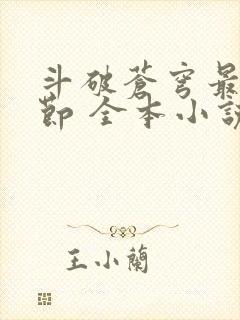 斗破蒼穹最
節 全本小說
王小蘭